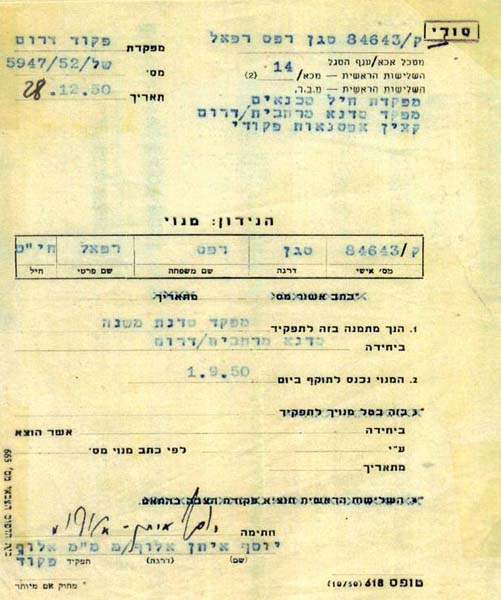 סודי
ק/84643 סגן רפס רפאל
מפקדת פקוד דרום
מטכל אכא/ענף הסגל
השלישות הראשית – מכא/14 (2)
מס' של/5947/52
השלישות הראשית – מ.ב.ד.
תאריך 28.12.50
מפקדת חיל טכנאים
מפקד סדנא מרחבית/דרום
קצין אפסנאות פקודי
הנידון: מנוי
ק/84643 סגן רפס רפאל חי"מ
מס' אישי דרגה שם משפחה שם פרטי חיל
*כתב אשור מס' מתאריך
1. הנך מתמנה בזה לתפקיד מפקד סדנת משנה
ביחידה סדנא מרחבית/דרום
2. המנוי נכנס לתוקף ביום 1.9.50
*3 בזה בטל מנויך לתפקיד
ביחידה אשר הוצא
ע"י לפי כתב מנוי מס'
מתאריך
*4. השלישות הראשית תוציא פקודת הצבה בהתאם.
חתימה
יוסף איתן אלוף/מ מ"מ אלוף
פקוד
(שם) (דרגה) תפקיד
* מחוק אם מיותר
טופס 618 (10/50)